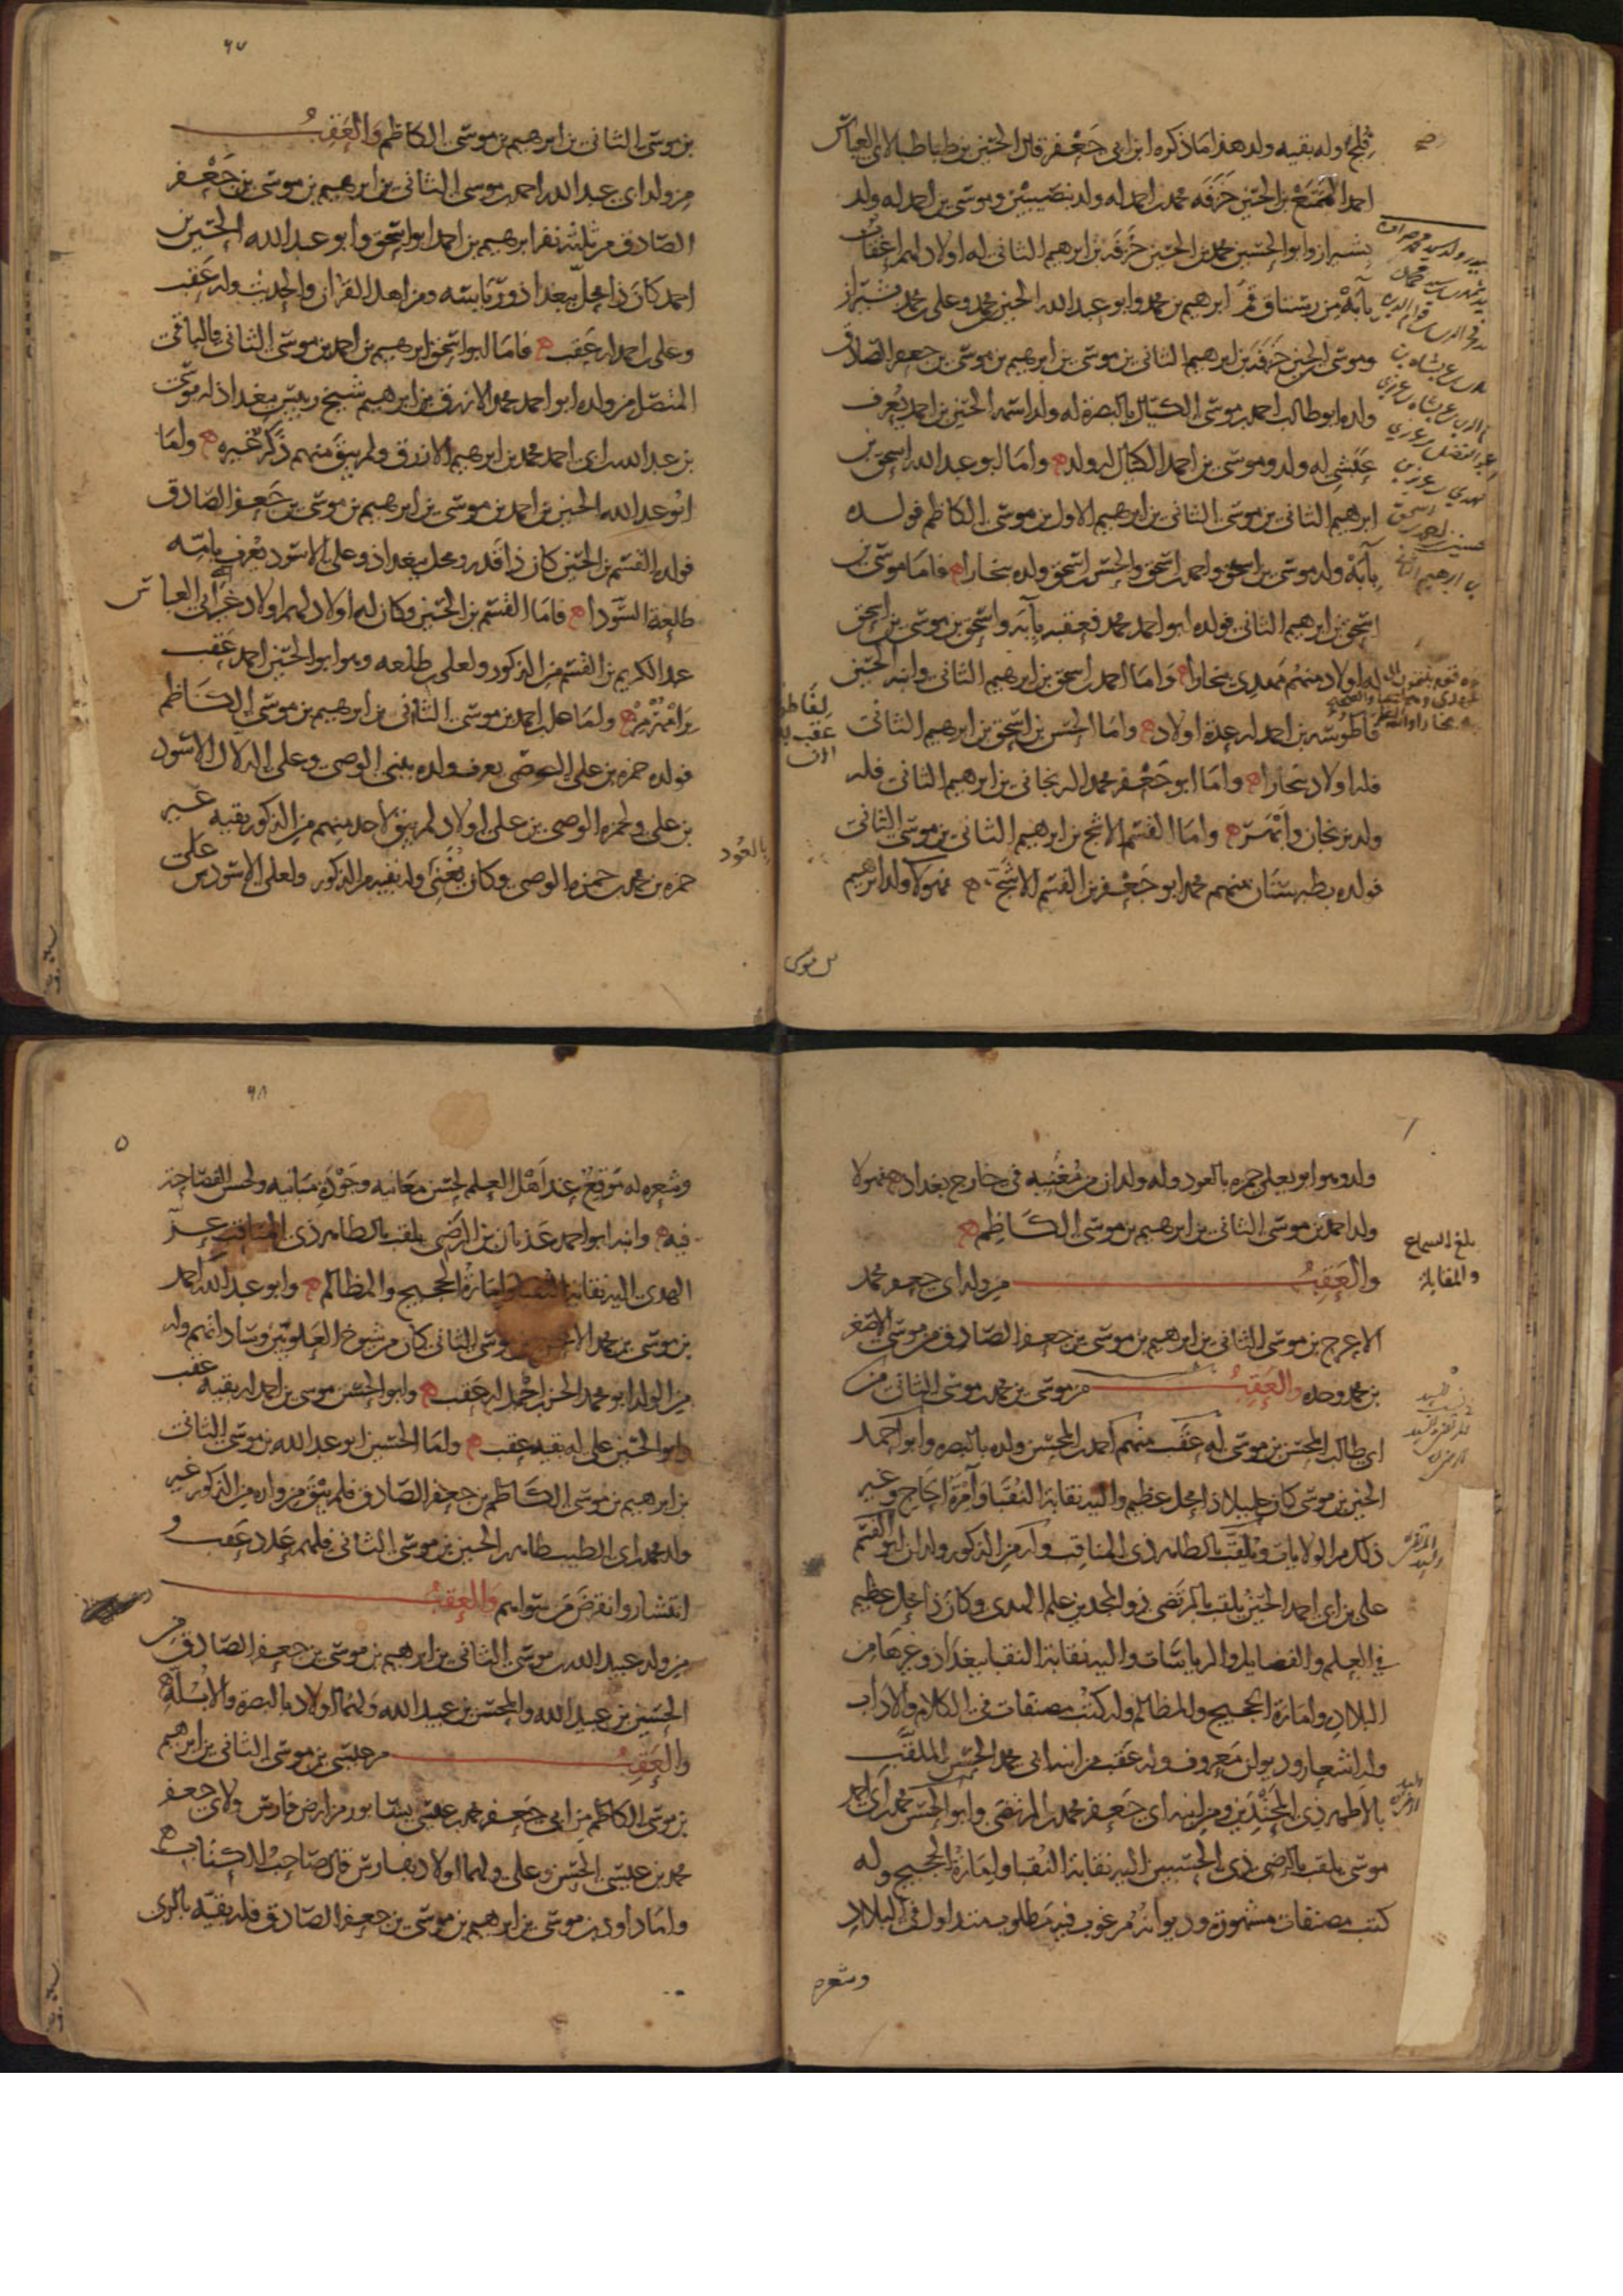 فلج وله بقيه ولد هذا ما ذكره ابن ابي جعفر قال الحسين بن طباطبا لابي العباس
احمد بن الحسين خرفه محمد بن احمد له ولد بنصيبين وموسى بن احمد له ولد
بشيراز وابو الحسين محمد بن الحسين خرفه بن ابرهيم الثاني له اولاد لهم اعقاب
بآبه من رستاق قم ابرهيم بن محمد وابو عبد الله الحسين بن محمد وعلي بن محمد بشيراز
وموسى بن الحسين خرفه بن ابرهيم الثاني بن موسى بن ابرهيم بن موسى بن جعفر الصادق
ولده ابو طالب احمد بن موسى الكيال بالبصرة له ولد اسمه الحسين بن احمد يعرف
له ولد وموسى بن احمد الكيال له ولد واما ابو عبد الله اسحق بن
ابرهيم الثاني بن موسى الثاني بن ابرهيم الاول بن موسى الكاظم فولده
بآبه ولد موسى بن اسحق واحمد بن اسحق والحسن بن اسحق ولده ببخارا فاما موسى بن
اسحق بن ابرهيم الثاني فولده ابو احمد محمد فعقبه بآبه واسحق بن موسى بن اسحق
له اولاد منهم مهدي ببخارا واما احمد بن اسحق بن ابرهيم الثاني وابنه الحسين
بن احمد له عدة اولاد واما الحسن بن اسحق بن ابرهيم الثاني
فله اولاد ببخارا واما ابو جعفر محمد بن ابرهيم الثاني فله
ولد بزنجان واما القسم الاشج بن ابرهيم الثاني بن موسى الثاني
فولده بطبرستان منهم محمد ابو جعفر بن القسم الاشج فهولا ولد ابرهيم
بن موسى
٦٧
بن موسى الثاني بن ابرهيم بن موسى الكاظم والعقب
من ولد ابي عبد الله احمد بن موسى الثاني بن ابرهيم بن موسى بن جعفر
الصادق من ثلثه نفر ابرهيم بن احمد ابو اسحق وابو عبد الله الحسين بن
احمد كان ذا محل ببغداد ورياسه ومن اهل القران والحديث وله عقب
وعلي بن احمد له عقب فاما ابو اسحق ابرهيم بن احمد بن موسى الثاني فالباقي
المتصل من ولده ابو احمد محمد الازرق بن ابرهيم شيخ رييس ببغداد له موسى
بن عبد الله بن ابي احمد محمد بن ابرهيم الازرق ولم يبق منهم ذكر غيره واما
ابو عبد الله الحسين بن احمد بن موسى بن ابرهيم بن موسى بن جعفر الصادق
فولده القسم بن الحسين كان ذا قدر ومحل ببغداد وعلي الاسود يعرف بامه
طلعه السودا فاما القسم بن الحسين وكان له اولاد لهم اولاد غير ابي العباس
عبد الكريم بن القسم من الذكور ولعلي بن طلعه وهو ابو الحسين احمد عقب
برامهرمز واما علي بن احمد بن موسى الثاني بن ابرهيم بن موسى الكاظم
فولده حمزه بن علي الوصي يعرف ولده ببني الوصي وعلي الدلال الاسود
بن علي ولحمزه الوصي بن علي اولاد لم يبق لاحد منهم من الذكور بقيه غير
حمزه بن محمد بن حمزه الوصي وكان يغني وله بقيه من الذكور ولعلي الاسود بن علي
بالعود
ولد وهو ابو يعلى حمزه بالعود وله ولدان من مغنيه في خارج بغداد فهولا
ولد احمد بن موسى الثاني بن ابرهيم بن موسى الكاظم
بلغ السماع
والمقابلة
والعقب من ولد ابي جعفر محمد
الاعرج بن موسى الثاني بن ابرهيم بن موسى بن جعفر الصادق من موسى الاصغر
بن محمد وحده والعقب من موسى بن محمد بن موسى الثاني من
ابي طالب المحسن بن موسى له عقب منهم احمد بن المحسن ولده بالبصره وابو احمد
الحسين بن موسى كان جليلا ذا محل عظيم واليه نقابة النقبا وامرة الحاج وغير
ذلك من الولايات ويلقب بالطاهر ذي المناقب وله من الذكور ولدان ابو القسم
علي بن ابي احمد الحسين يلقب بالمرتضى ذو المجدين علم الهدى وكان ذا محل عظيم
في العلم والفضايل والرياسات واليه نقابة النقبا ببغداد وغيرها من
البلاد وامارة الحجيج والمظالم وله كتب مصنفات في الكلام والاداب
وله اشعار وديوان معروف وله عقب من ابنه ابي محمد الحسن الملقب
بالاطهر ذي المحتدين ومن ابنه ابي جعفر محمد بن المرتضى وابو الحسن محمد بن ابي احمد
موسى يلقب بالرضي ذي الحسبين اليه نقابة النقبا وامارة الحجيج وله
كتب مصنفات مشهورة وديوانه مرغوب فيه مطلوب متداول في البلاد
وشعره
٦٨
وشعره له موقع عند اهل العلم لحسن معانيه وجودة مبانيه ولحسن الفصاحة
فيه وابنه ابو احمد عدنان بن الرضي يلقب بالطاهر ذي المناقب عز
الهدى اليه نقابة النقبا وامارة الحجيج والمظالم وابو عبد الله احمد
بن موسى بن محمد الاعرج بن موسى الثاني كان من شيوخ العلويين وساداتهم وله
من الولد ابو محمد الحسن بن احمد له عقب وابو الحسن موسى بن احمد له بقيه عقب
وابو الحسين علي له بقيه عقب واما الحسين ابو عبد الله بن موسى الثاني
بن ابرهيم بن موسى الكاظم بن جعفر الصادق فلم يبق من ولده من الذكور غير
ولد محمد ابي الطيب طاهر بن الحسين بن موسى الثاني فلهم عدد عقب و
انتشار وانقرض من سواهم والعقب
من ولد عبيد الله بن موسى الثاني بن ابرهيم بن موسى بن جعفر الصادق من
الحسين بن عبيد الله والمحسن بن عبيد الله ولهما اولاد بالبصرة والابلة
والعقب من عيسى بن موسى الثاني بن ابرهيم
بن موسى الكاظم من ابي جعفر محمد بن عيسى بنيسابور من ارض فارس ولابي جعفر
محمد بن عيسى الحسن وعلي ولهما اولاد بفارس قال صاحب الكتاب
واما داود بن موسى بن ابرهيم بن موسى بن جعفر الصادق فله بقيه بالري